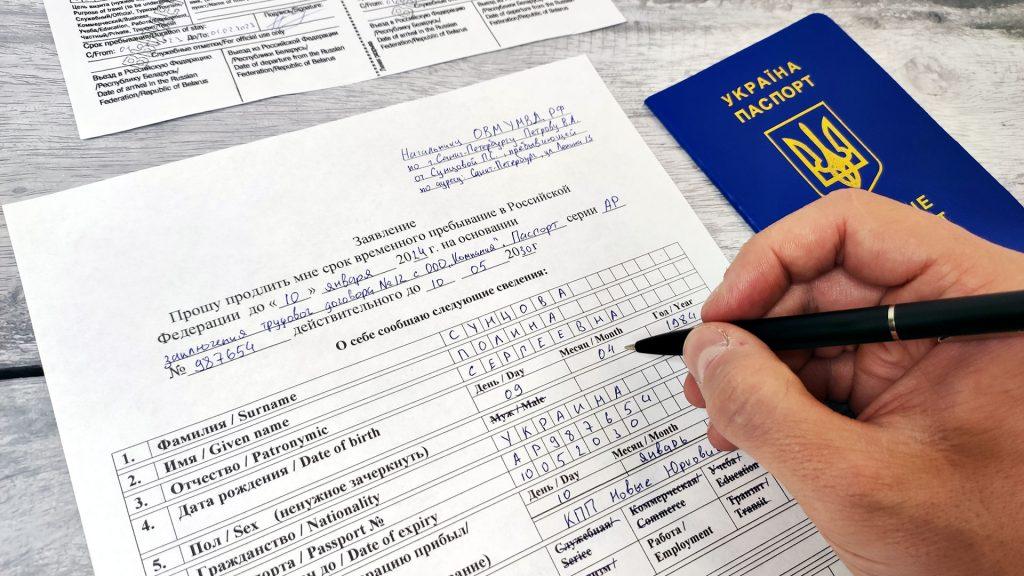 Служебный/
Коммерческий/Business,
Учеба/Education, Работа/
Частный/Private, Транзит/
Подпись/Signature:
Срок пребывания/
С/From: До/To:
Служебные отметки/For official use only
Въезд в Российскую Федерацию
/Республику Беларусь/
Date of arrival in the Russian
Federation/Republic of Belarus
Выезд из Российской Федерации
/Республики Беларусь/
Date of departure from the Russian
Federation/Republic of Belarus
Въезд в Российскую Федерацию
/Республику Беларусь/
Date of arrival in the Russian
Federation/Republic of Belarus
УКРАЇНА
ПАСПОРТ
Начальнику ОВМ УМВД РФ
по г. Санкт-Петербургу Петрову В.А.
от Сунцовой П.С., пребывающей
по адресу: Санкт-Петербург, ул. Ленина 15
Заявление
Прошу продлить мне срок временного пребывания в Российской
Федерации до « 10 » января 2024 г. на основании
заключения трудового договора №12 с ООО "Компания" Паспорт серии АР
№ 987654 действительного до 10 05 2030г
О себе сообщаю следующие сведения:
1. Фамилия / Surname СУНЦОВА
2. Имя / Given name ПОЛИНА
3. Отчество / Patronymic СЕРГЕЕВНА
4. Дата рождения / Date of birth День / Day Месяц / Month Год / Year
09 04 1984
5. Пол / Sex (ненужное зачеркнуть) Муж / Male
Гражданство / Nationality УКРАИНА
Passport № АР987654
Date of expiry 10052030
прибыл/ День / Day Месяц / Month
10 январь
КПП Новые Юрковичи
Служебная/
Коммерческая/
Commerce
Учеба/
Education
Работа/
Employment
Транзит/
Transit